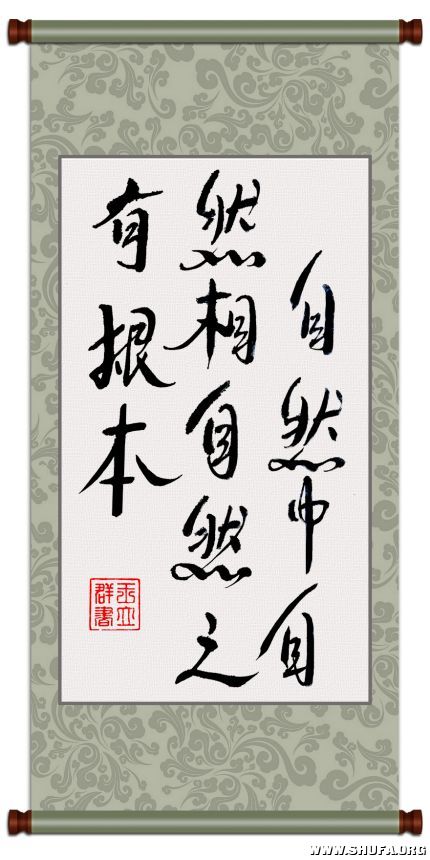 自然中自
然相自然之
有根本
群書
WWW.SHUFA.ORG